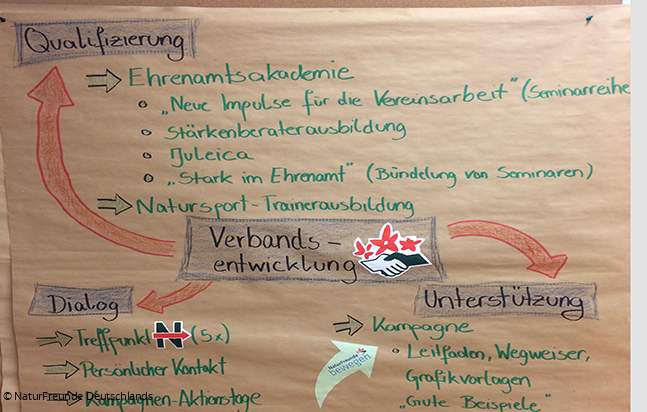 Qualifizierung
Ehrenamtsakademie
„Neue Impulse für die Vereinsarbeit" (Seminarreihe
Stärkenberaterausbildung
Juleica
„Stark im Ehrenamt" (Bündelung von Seminaren)
Natursport-Trainerausbildung
Verbands-
entwicklung
Dialog
Treffpunkt N (5x)
Persönlicher Kontakt
Kampagnen-Aktionstage
Unterstützung
Kampagne
NaturFreunde
bewegen
Leitfaden, Wegweiser,
Grafikvorlagen
„Gute Beispiele"
© NaturFreunde Deutschlands